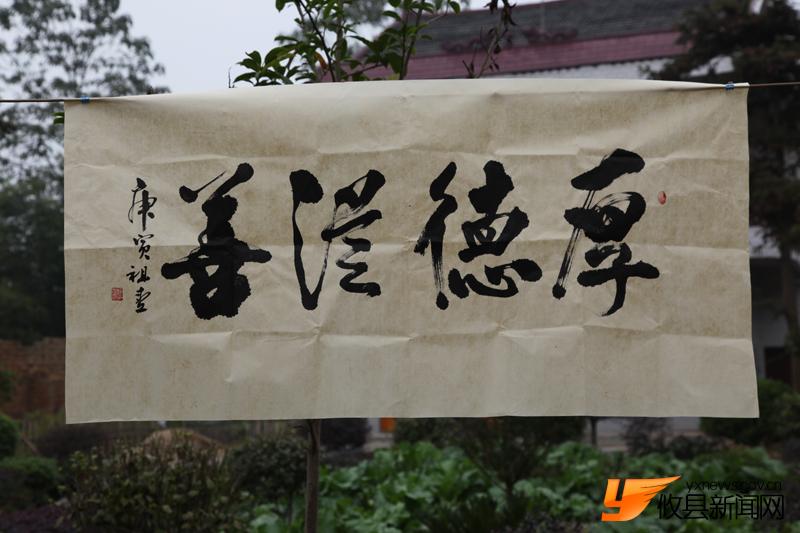 厚德從善
庚寅祖喜
yxnews.gov.cn
攸县新闻网